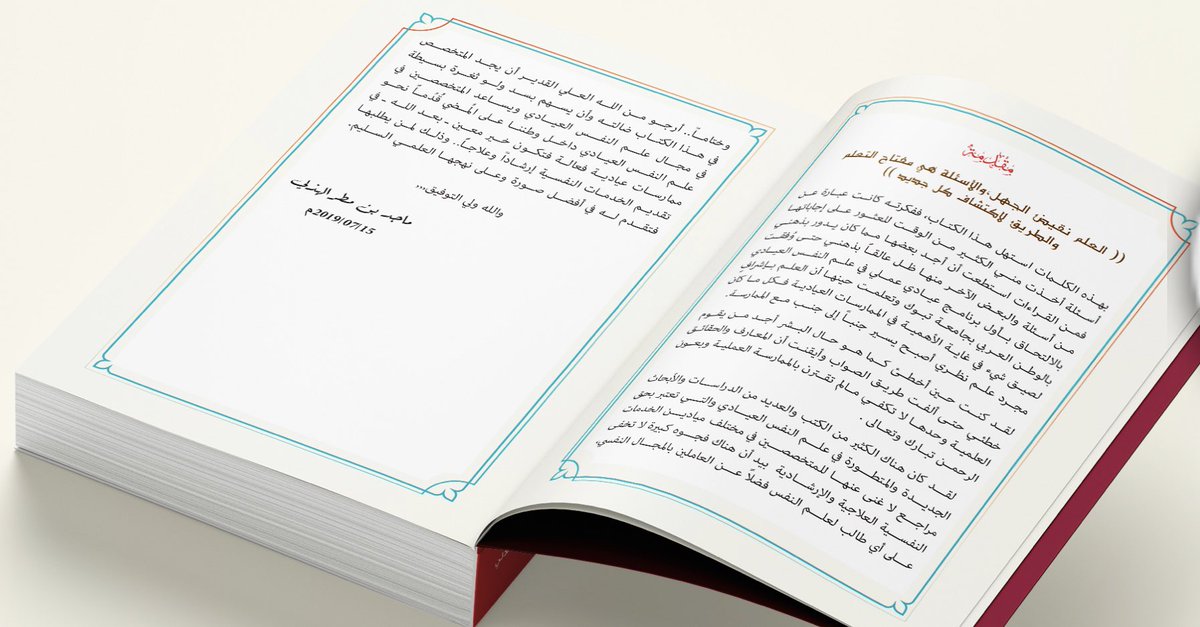 مقدمة
(( العلم نقيض الجهل،والأسئلة هي مفتاح التعلم
والطريق لاكتشاف كل جديد ))
بهذه الكلمات استهل هذا الكتاب، ففكرته كانت عبارة عن
أسئلة أخذت مني الكثير من الوقت للعثور على إجاباتها
فمن القراءات استطعت أن أجد بعضها مما كان يدور بذهني
من أسئلة والبعض الآخر منها ظل عالقاً بذهني حتى وُفقت
بالالتحاق بأول برنامج عيادي عملي في علم النفس العيادي
بالوطن العربي بجامعة تبوك وتعلمت حينها أن العلم بإشراف
لصيق شيء في غاية الأهمية في الممارسات العيادية فكل ما كان
مجرد علم نظري أصبح يسير جنباً إلى جنب مع الممارسة.
لقد كنت حين أخطئ كما هو حال البشر أجد من يقوم
خطئي حتى ألفت طريق الصواب وأيقنت أن المعارف والحقائق
العلمية وحدها لا تكفي مالم تقترن بالممارسة العملية وبعون
الرحمن تبارك وتعالى .
لقد كان هناك الكثير من الكتب والعديد من الدراسات والأبحاث
الجديدة والمتطورة في علم النفس العيادي والتي تعتبر بحق
مراجع لا غنى عنها للمتخصصين في مختلف ميادين الخدمات
النفسية العلاجية والإرشادية بيد أن هناك فجوه كبيرة لا تخفى
على أي طالب لعلم النفس فضلاً عن العاملين بالمجال النفسي.
وختاماً.. أرجو من الله العلي القدير أن يجد المتخصص
في هذا الكتاب ضالته وأن يسهم بسد ولو ثغرة بسيطة
في مجال علم النفس العيادي ويساعد المتخصصين في
علم النفس العيادي داخل وطننا على المُضي قُدُماً نحو
ممارسات عيادية فعالة فتكون خير معين ـ بعد الله ـ في
تقديم الخدمات النفسية إرشاداً وعلاجاً.. وذلك لمن يطلبها
فتقدم له في أفضل صورة وعلى نهجها العلمي السليم.
والله ولي التوفيق،،،
ماجد بن مطر
2019/07/15م